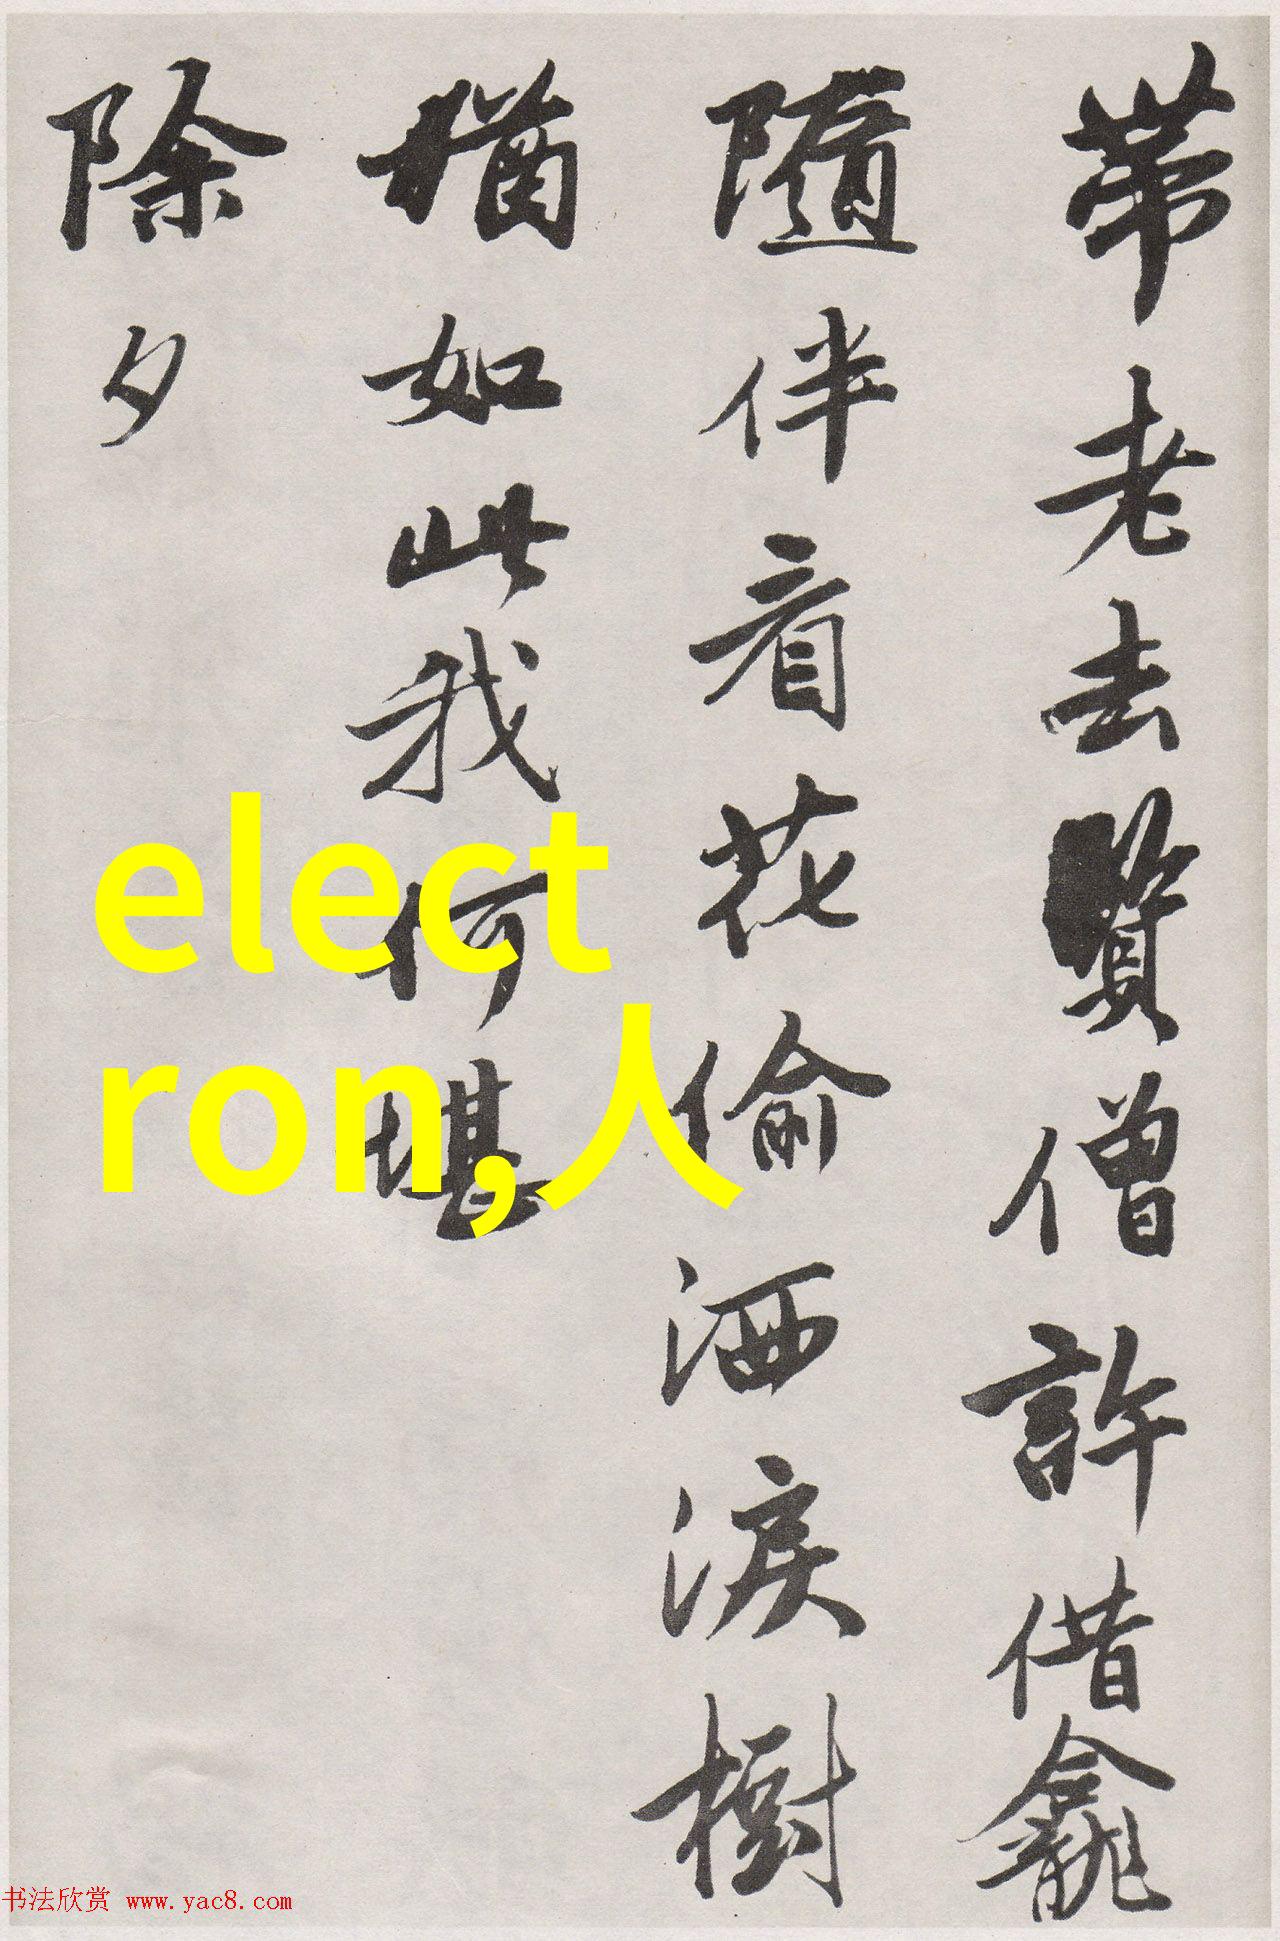 帶老去賢僧許借龕
隨伴看花偷洒淚樹
猶如此我何堪
除夕
elect
ron,人
书法欣赏 www.yac8.com